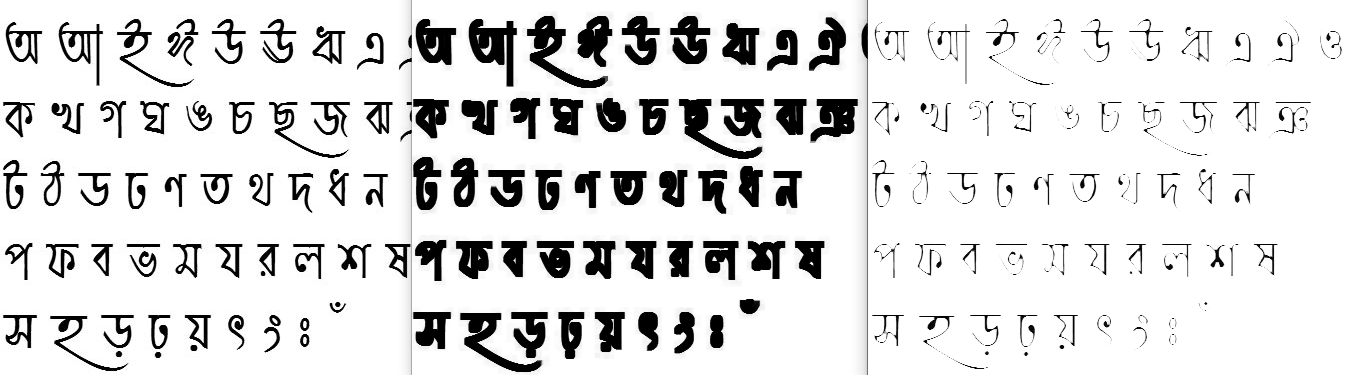 অ আ ই ঈ উ ঊ ঋ এ
ক খ গ ঘ ঙ চ ছ জ ঝ
ট ঠ ড ঢ ণ ত থ দ ধ ন
প ফ ব ভ ম য র ল শ ষ
স হ ড় ঢ় য় ৎ ং ঃ ঁ
অ আ ই ঈ উ ঊ ঋ এ ঐ
ক খ গ ঘ ঙ চ ছ জ ঝ ঞ
ট ঠ ড ঢ ণ ত থ দ ধ ন
প ফ ব ভ ম য র ল শ ষ
স হ ড় ঢ় য় ৎ ং ঃ ঁ
অ আ ই ঈ উ ঊ ঋ এ ঐ ও
ক খ গ ঘ ঙ চ ছ জ ঝ ঞ
ট ঠ ড ঢ ণ ত থ দ ধ ন
প ফ ব ভ ম য র ল শ ষ
স হ ড় ঢ় য় ৎ ং ঃ ঁ